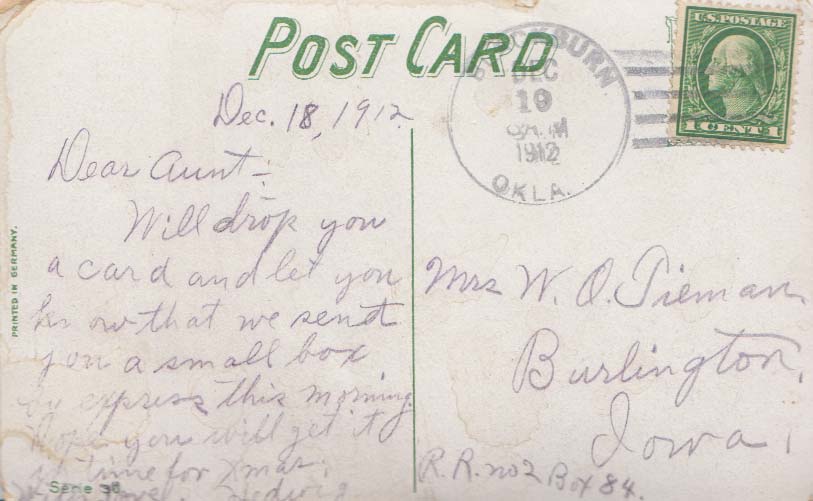 POST CARD
BLACKBURN
DEC
19
1912
OKLA.
U.S. POSTAGE
1 CENT 1
Dec. 18, 1912.
Dear Aunt:
Will drop you
a card and let you
know that we send
you a small box
by express this morning.
Hope you will get it
in time for Xmas.
Hedwig
Mrs W. O. Tieman,
Burlington,
Iowa,
R.R. no 2 Box 84.
PRINTED IN GERMANY.
Serie 36